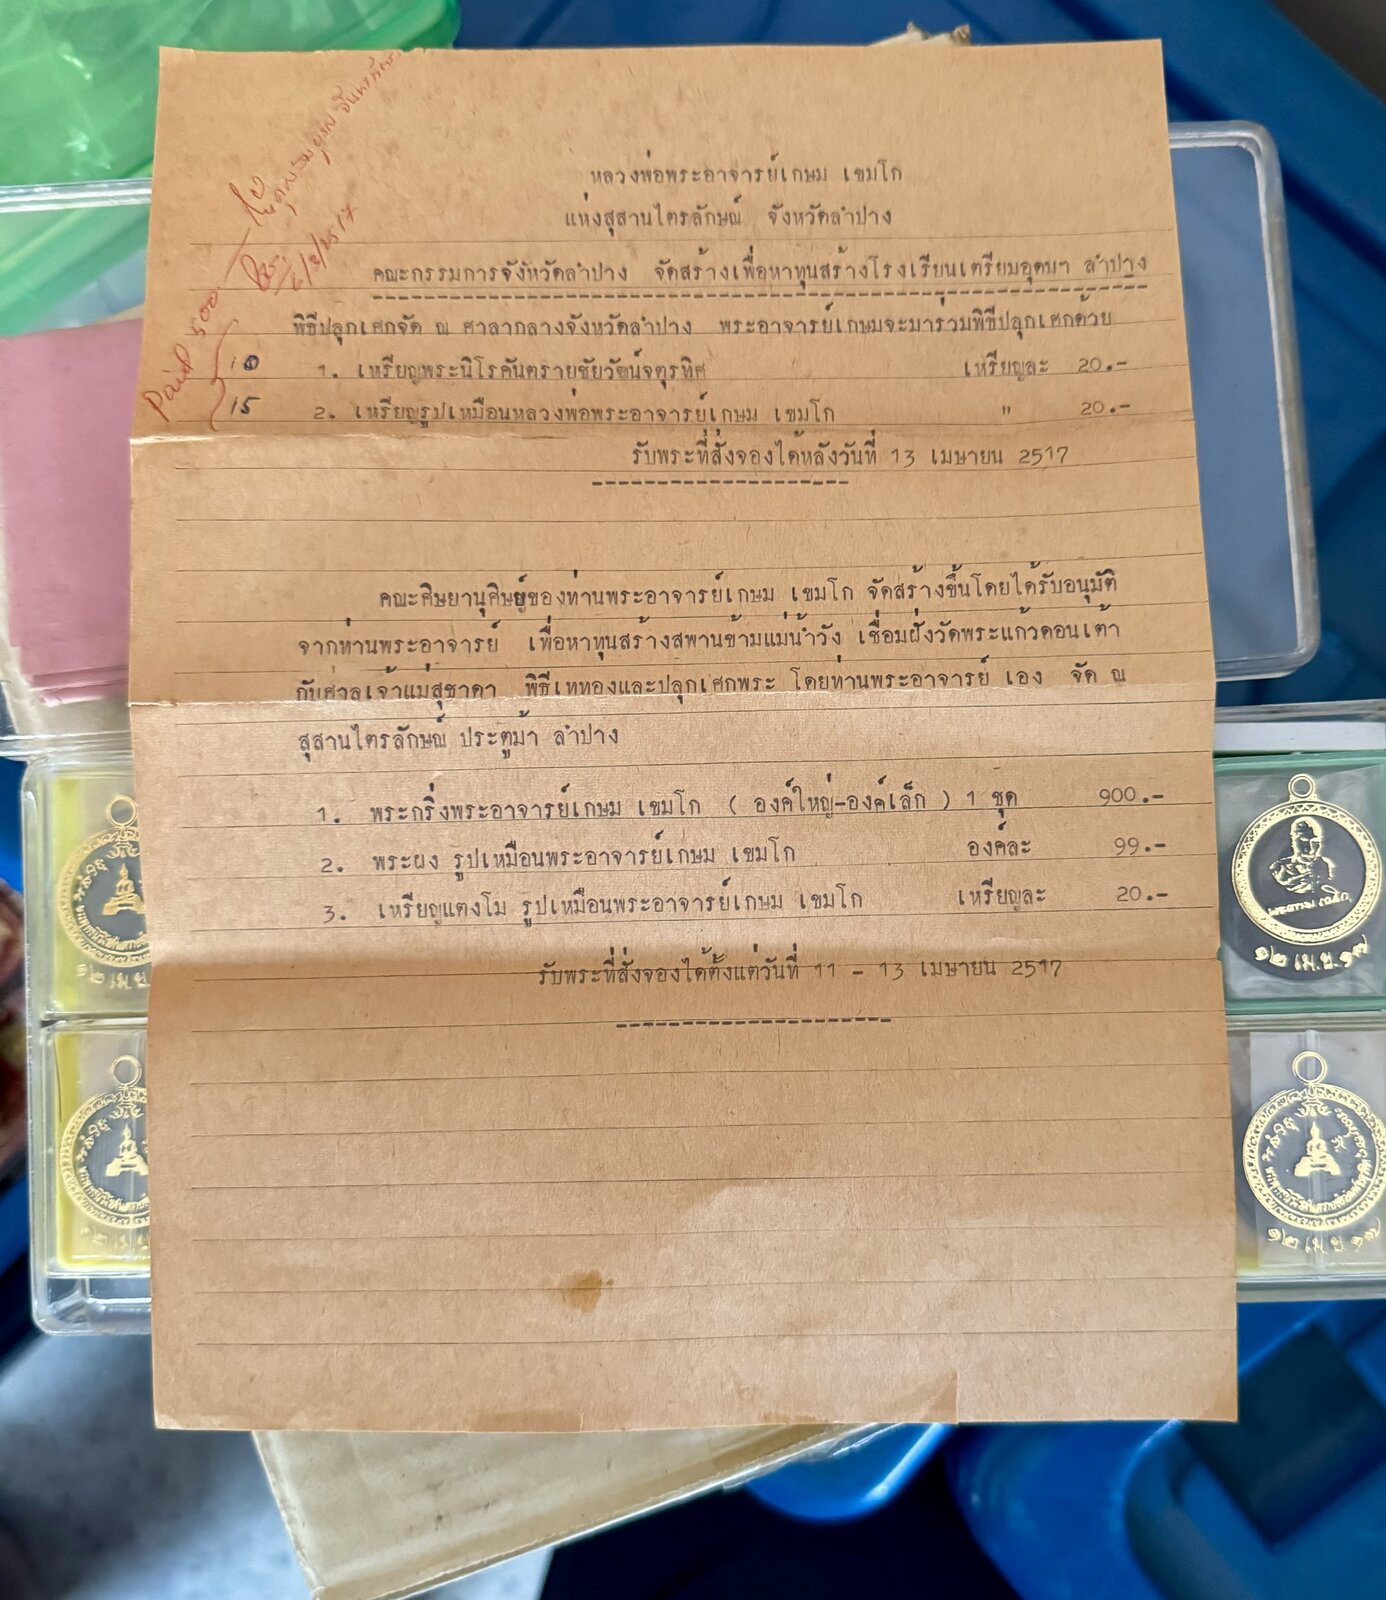 Paid 500
6/3/2517
หลวงพ่อพระอาจารย์เกษม เขมโก
แห่งสุสานไตรลักษณ์ จังหวัดลำปาง
คณะกรรมการจังหวัดลำปาง จัดสร้างเพื่อหาทุนสร้างโรงเรียนเตรียมอุดมฯ ลำปาง
พิธีปลุกเศกจัด ณ ศาลากลางจังหวัดลำปาง พระอาจารย์เกษมจะมาร่วมพิธีปลุกเศกด้วย
10 1. เหรียญพระนิโรคันตรายชัยวัฒน์จตุรทิศ เหรียญละ 20.-
15 2. เหรียญรูปเหมือนหลวงพ่อพระอาจารย์เกษม เขมโก " 20.-
รับพระที่สั่งจองได้หลังวันที่ 13 เมษายน 2517
คณะศิษยานุศิษย์ของท่านพระอาจารย์เกษม เขมโก จัดสร้างขึ้นโดยได้รับอนุมัติ
จากท่านพระอาจารย์ เพื่อหาทุนสร้างสพานข้ามแม่น้ำวัง เชื่อมฝั่งวัดพระแก้วดอนเต้า
กับศาลเจ้าแม่สุชาดา พิธีเททองและปลุกเศกพระ โดยท่านพระอาจารย์ เอง จัด ณ
สุสานไตรลักษณ์ ประตูม้า ลำปาง
1. พระกริ่งพระอาจารย์เกษม เขมโก ( องค์ใหญ่-องค์เล็ก ) 1 ชุด 900.-
2. พระผง รูปเหมือนพระอาจารย์เกษม เขมโก องค์ละ 99.-
3. เหรียญแตงโม รูปเหมือนพระอาจารย์เกษม เขมโก เหรียญละ 20.-
รับพระที่สั่งจองได้ตั้งแต่วันที่ 11 - 13 เมษายน 2517
๑๒ เม.ย.
๑๒ เม.ย.
๑๒ เม.ย.๑๗
๑๒ เม.ย.๑๗